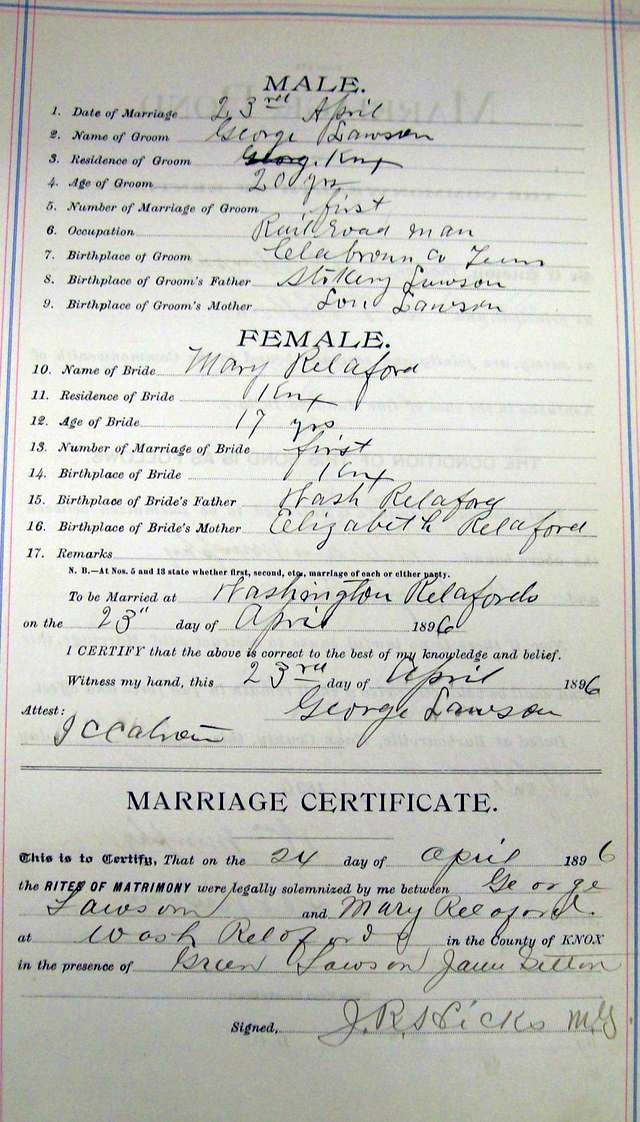 MALE.
1. Date of Marriage 23rd April
2. Name of Groom George Lawson
3. Residence of Groom Knx
4. Age of Groom 20 yrs
5. Number of Marriage of Groom first
6. Occupation Rail road man
7. Birthplace of Groom Claborn Co Tenn
8. Birthplace of Groom's Father Lawson
9. Birthplace of Groom's Mother Lou Lawson
FEMALE.
10. Name of Bride Mary Relaford
11. Residence of Bride Knx
12. Age of Bride 17 yrs
13. Number of Marriage of Bride first
14. Birthplace of Bride Knx
15. Birthplace of Bride's Father Wash Relaford
16. Birthplace of Bride's Mother Elizabeth Relaford
17. Remarks
N. B.—At Nos. 5 and 13 state whether first, second, etc., marriage of each or either party.
To be Married at Washington Relafords
on the 23" day of April 1896
I CERTIFY that the above is correct to the best of my knowledge and belief.
Witness my hand, this 23rd day of April 1896
George Lawson
Attest:
MARRIAGE CERTIFICATE.
This is to Certify, That on the 24 day of April 1896
the RITES OF MATRIMONY were legally solemnized by me between George
Lawson and Mary Relaford.
at Wash Relafords in the County of KNOX
in the presence of Green Lawson
Signed, J. R. Hicks M.G.